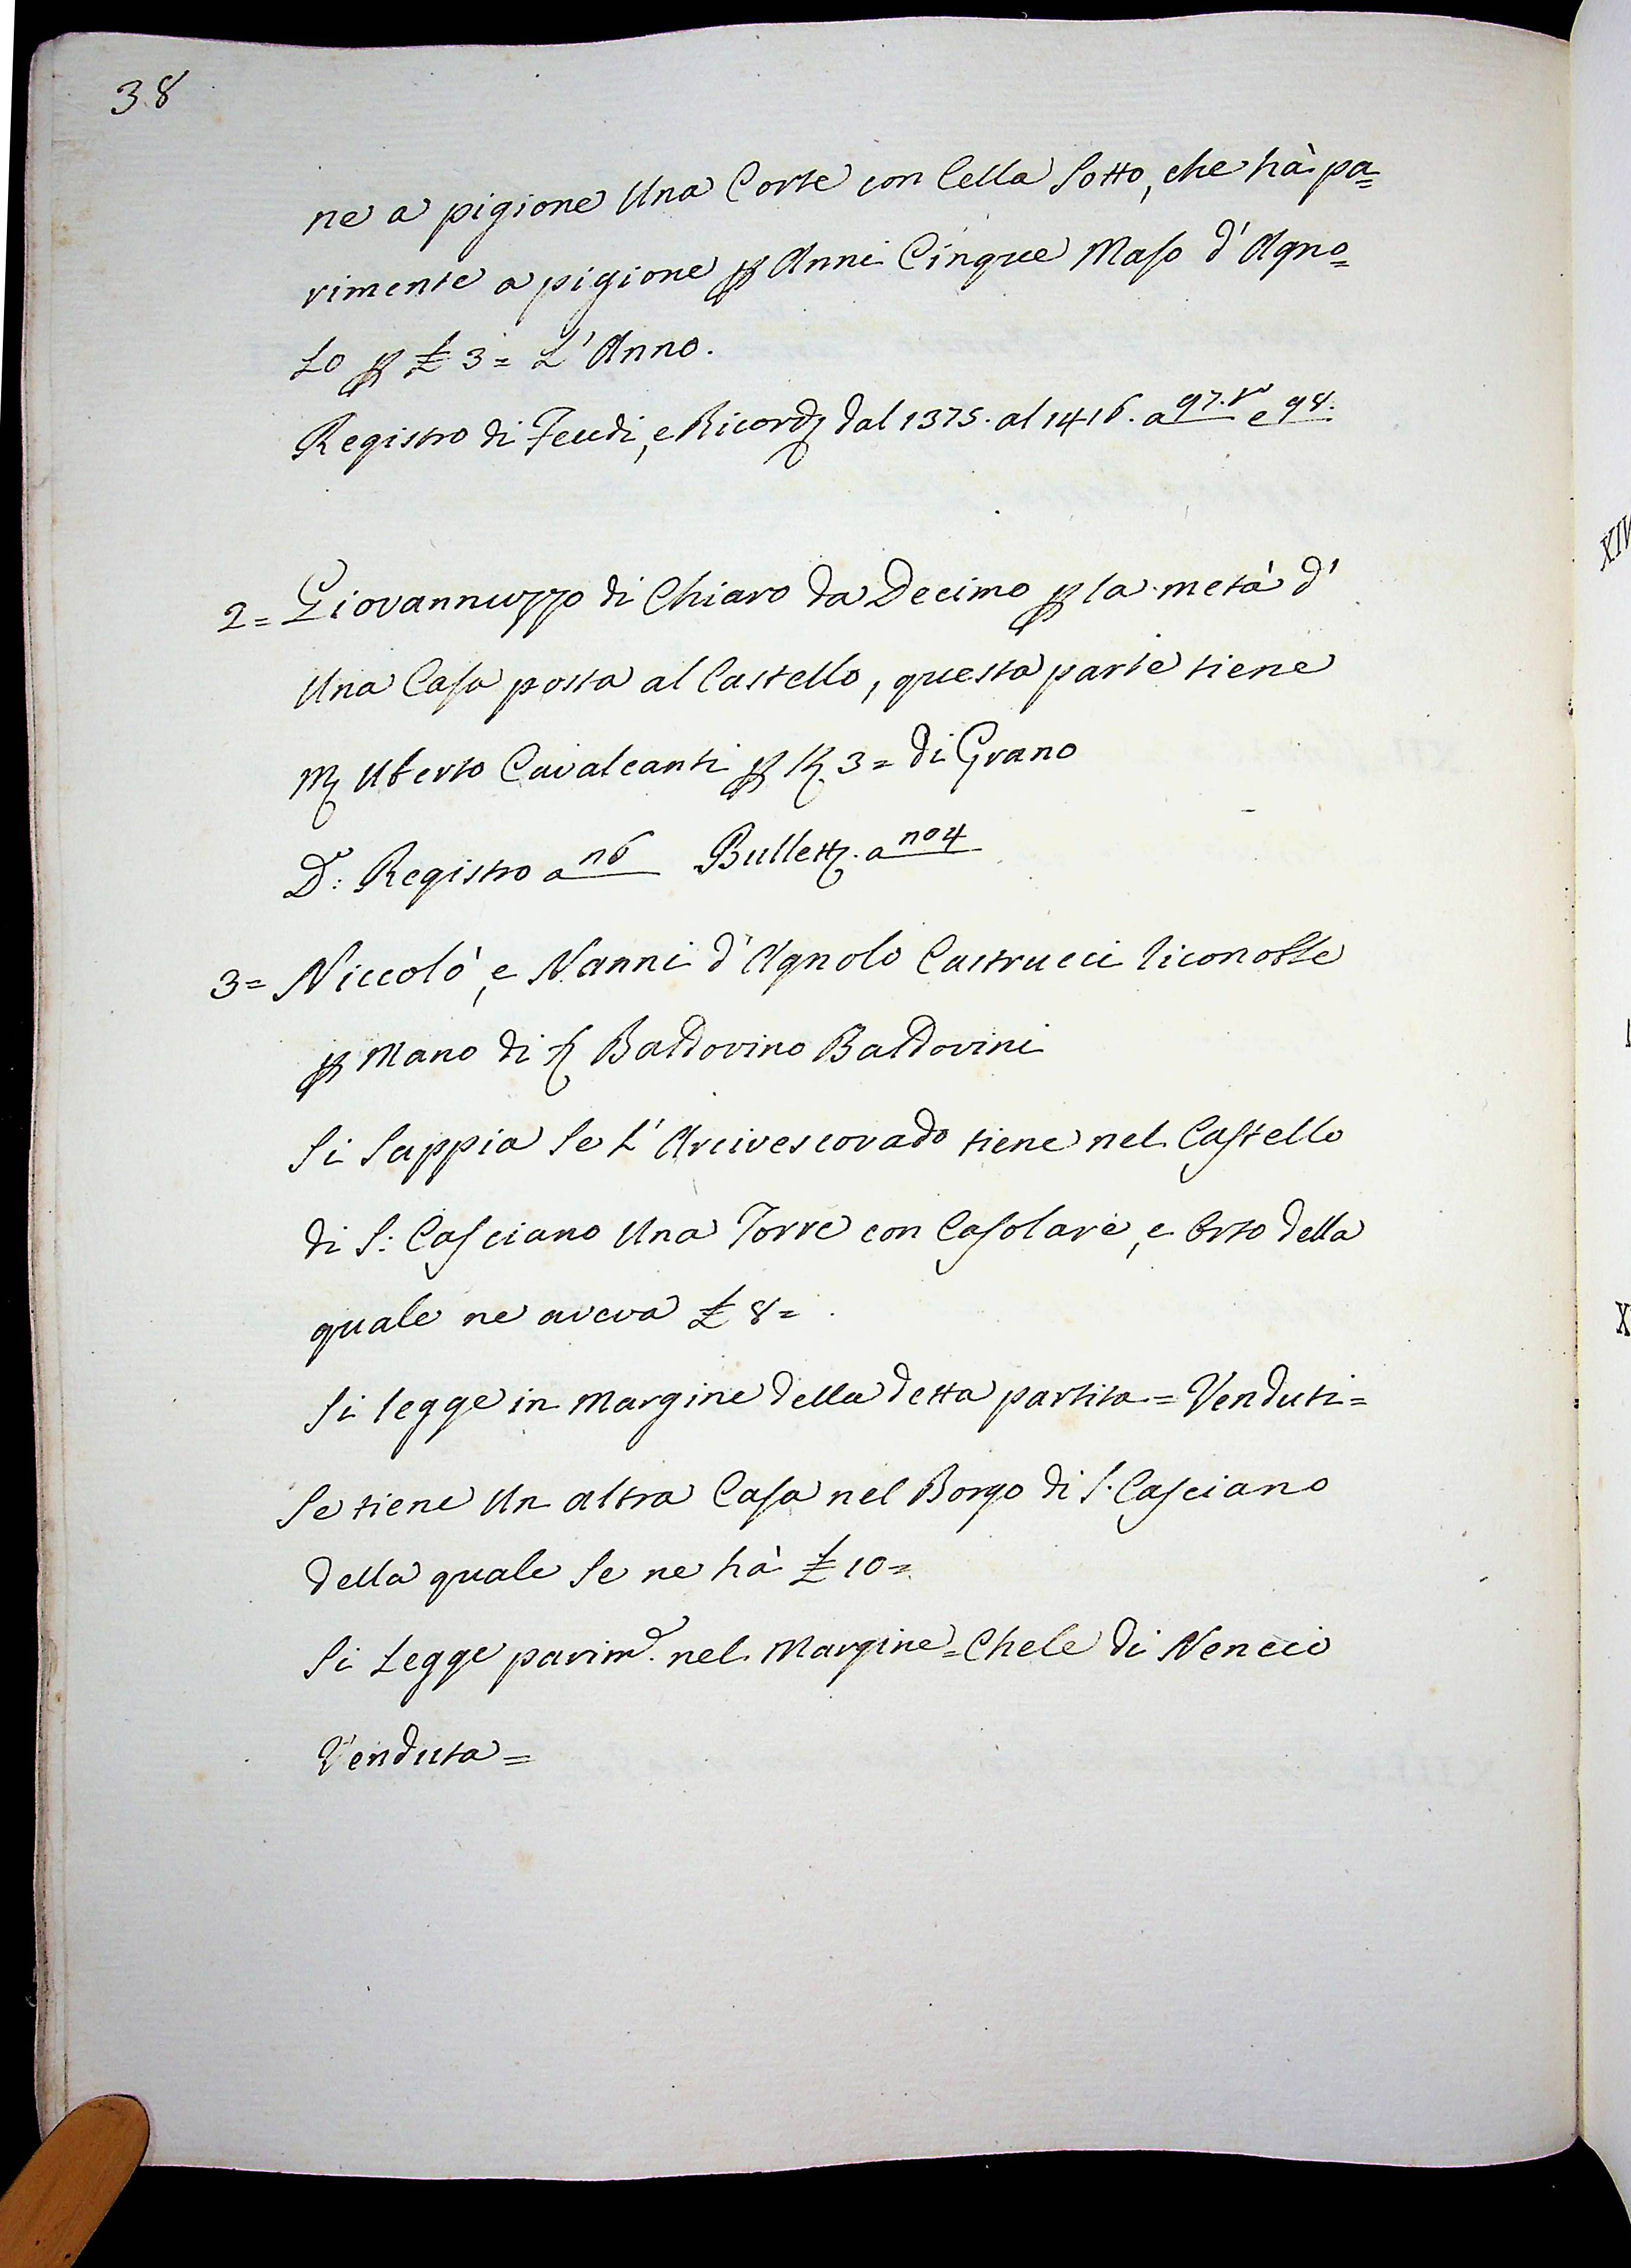 38
ne a pigione Una Corte con Cella Sotto, che hà pa=
rimente a pigione p Anni Cinque Maso d'Agno=
lo p £ 3= L'Anno.
Registro di Feudi, e Ricord dal 1375. al 1416. a 97.to e 98.
2= Giovannuzzo di Chiaro da Decimo p la metà d'
Una Casa posta al Castello, questa parte tiene
M Uberto Cavalcanti p 3= di Grano
Do: Registro a 116 Bullett. a 114
3= Niccolò, e Nanni d'Agnolo Castrucci riconobbe
p Mano di S Baldovino Baldovini
Si Sappia Se L'Arcivescovado tiene nel Castello
di S: Casciano Una Torre con Casolare, e Orto della
quale ne aveva £ 8=
Si legge in Margine della detta partita = Venduti=
Se tiene Un altra Casa nel Borgo di S. Casciano
della quale Se ne hà £ 10=
Si Legge parim.e nel Margine = Chele di Nencio
Venduta=
XIV
X